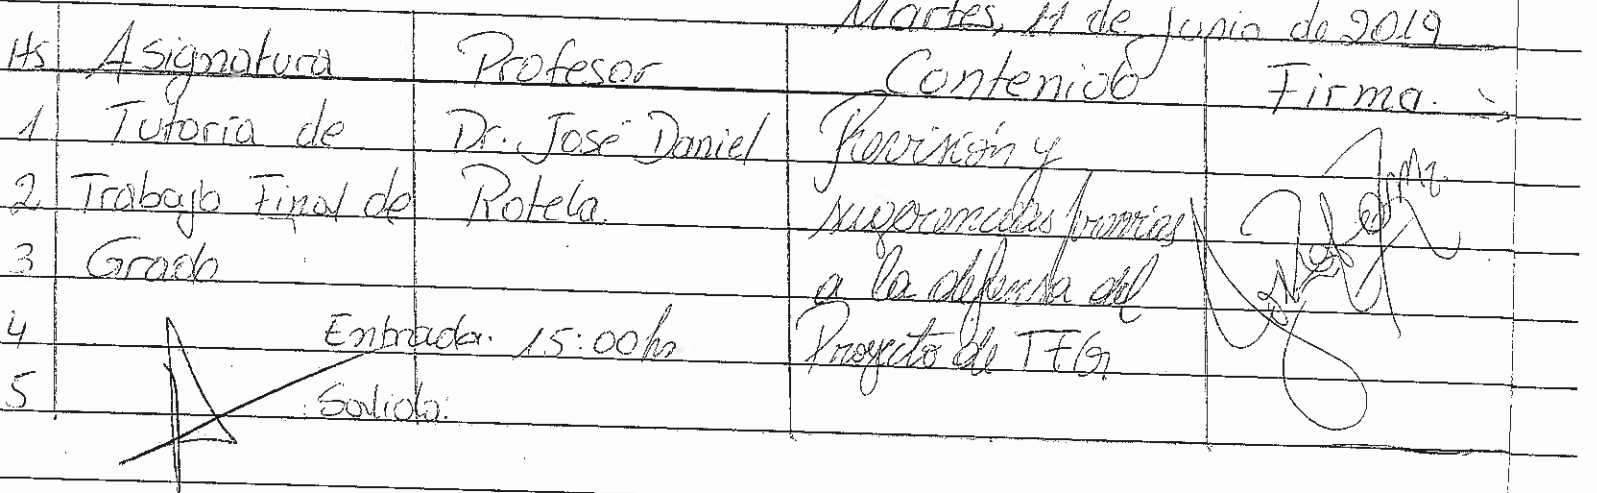 Martes, 11 de Junio de 2019
Hs Asignatura Profesor Contenido Firma.
1 Tutoría de Dr. José Daniel Revisión y
2 Trabajo Final de Rotela. sugerencias previas
3 Grado a la defensa del
4 Entrada: 15:00 hs Proyecto de TFG.
5 Salida: